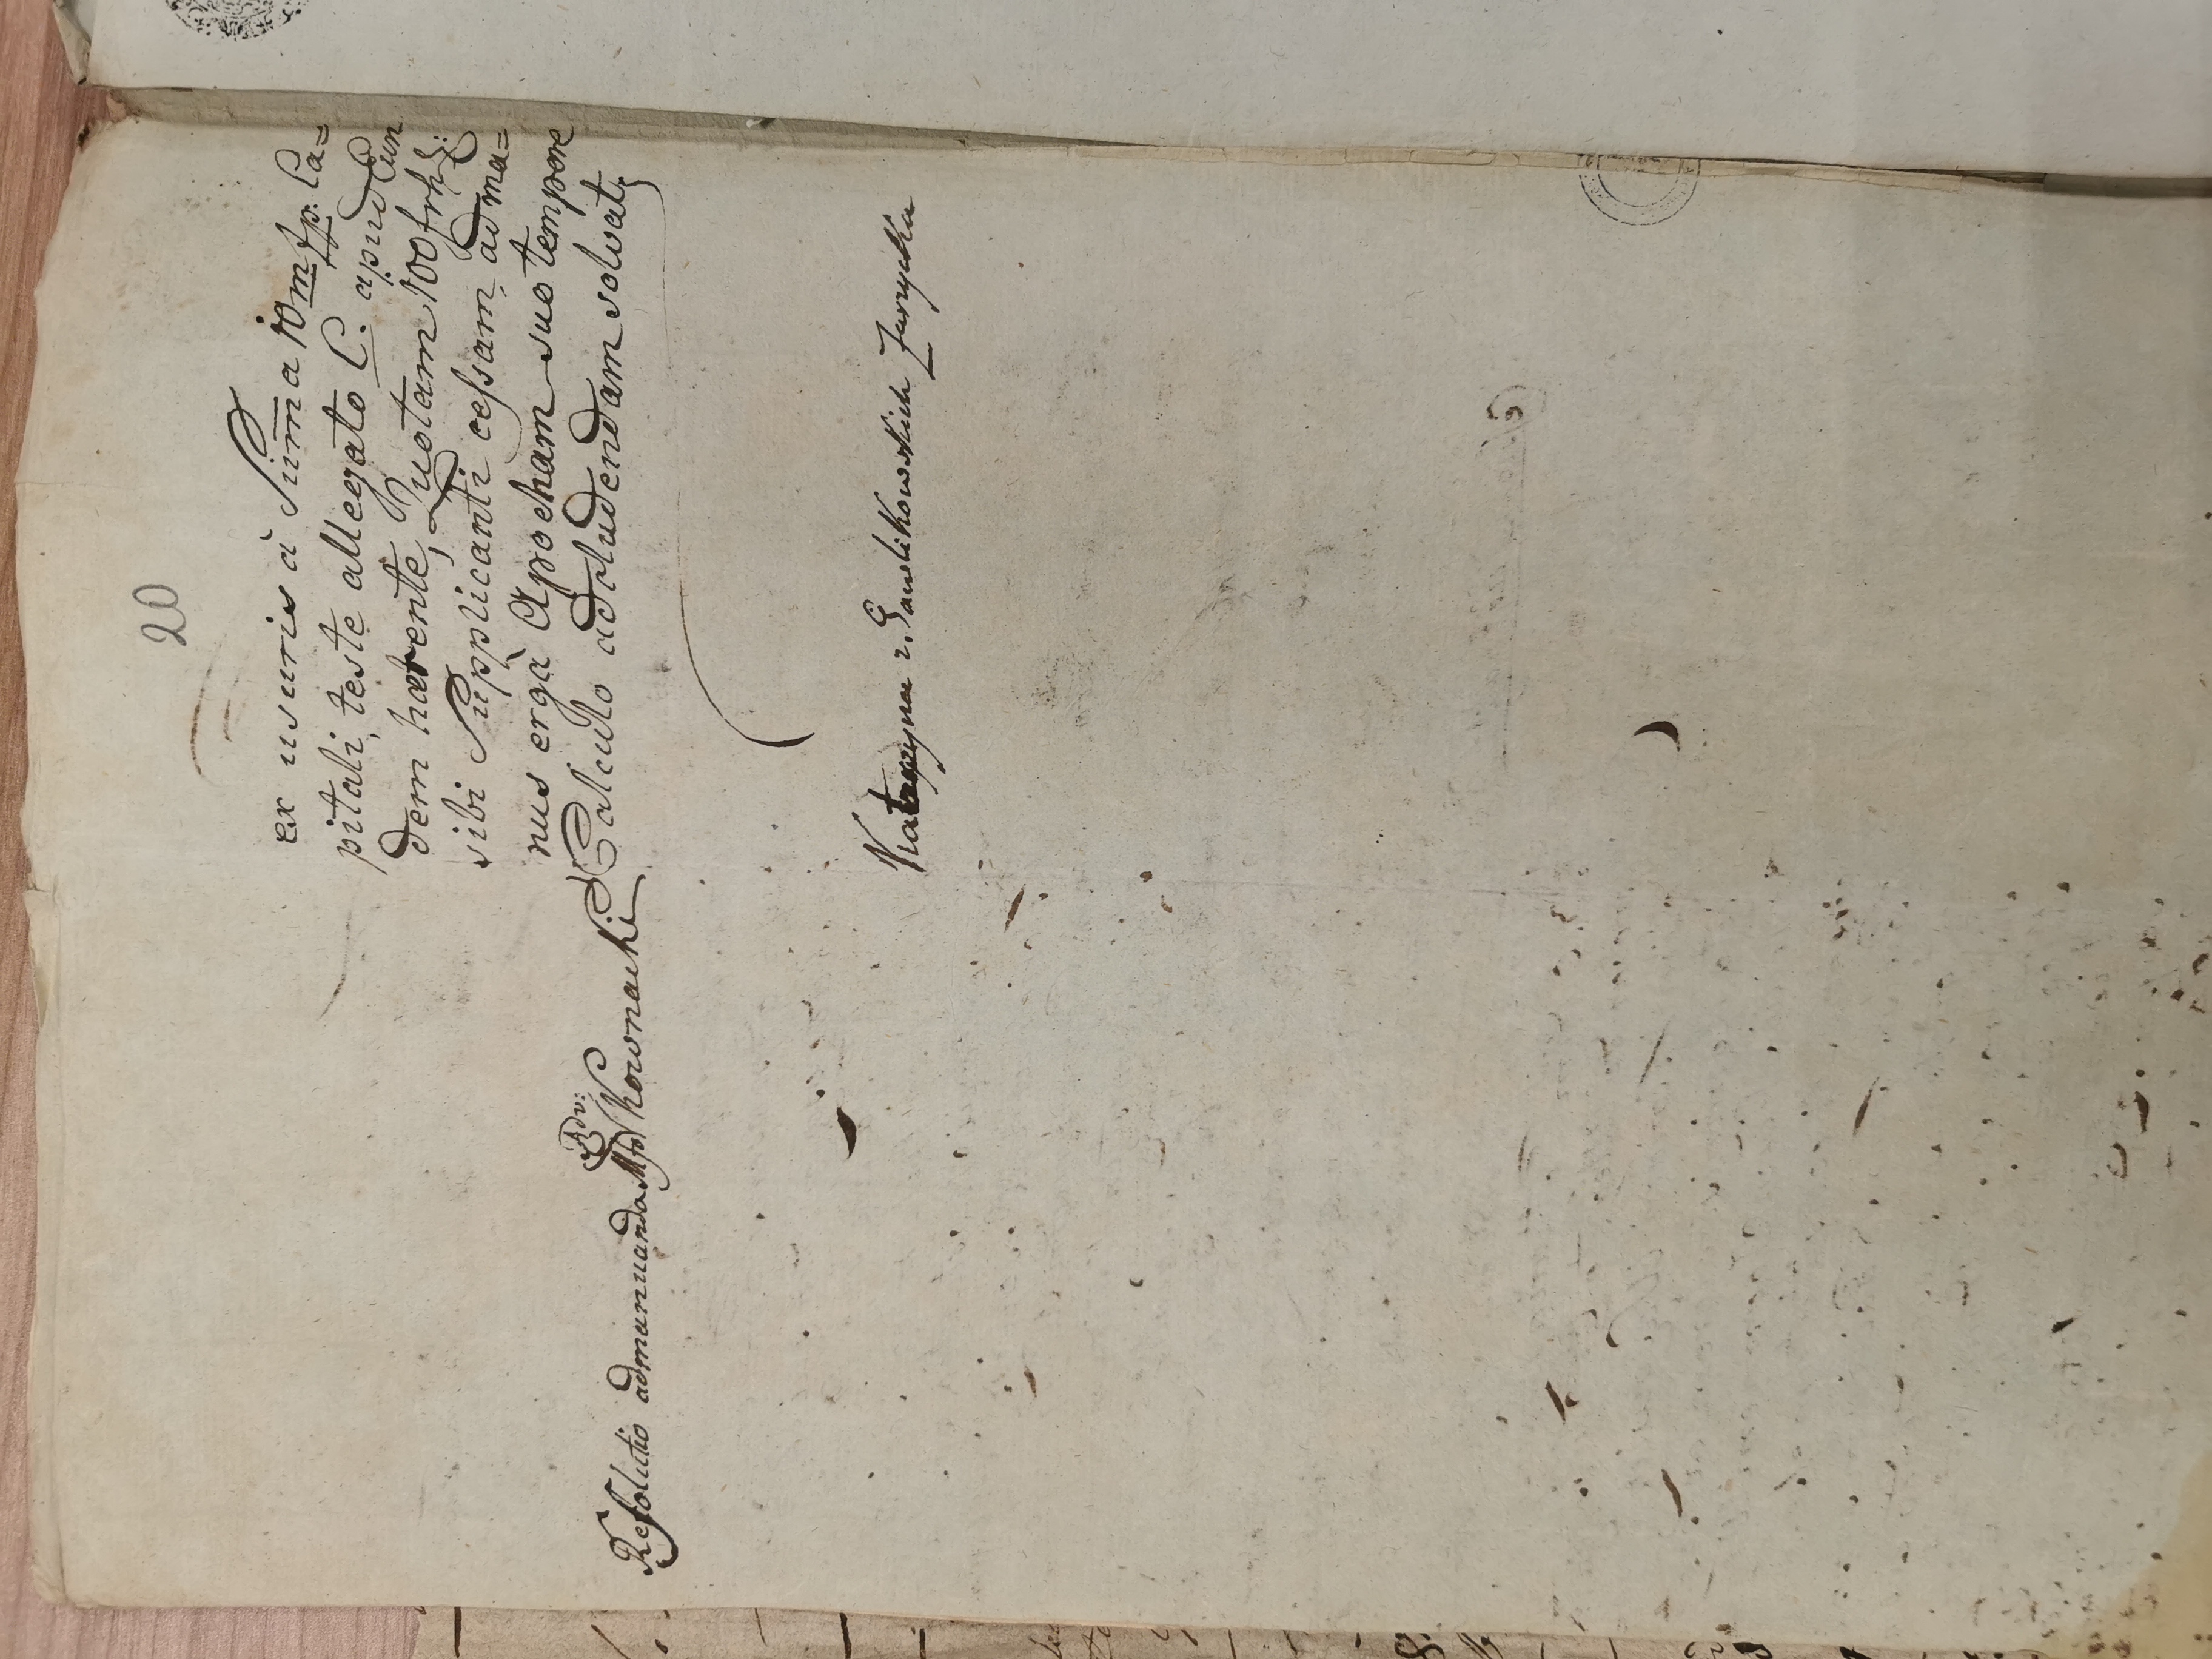 20
ex usuris à Sum̄a 10 m fp. Ca=
pitali, teste allegato C. apud Eun
dem haerente, Quotam 100 frh:
sibi Supplicanti cessam, ad ma=
nus ergà Apocham suo tempore
Calculo adcludendam solvat,
Resolutio admanuanda Adv: Kownacki
Katarzyna z Gawlikowskich